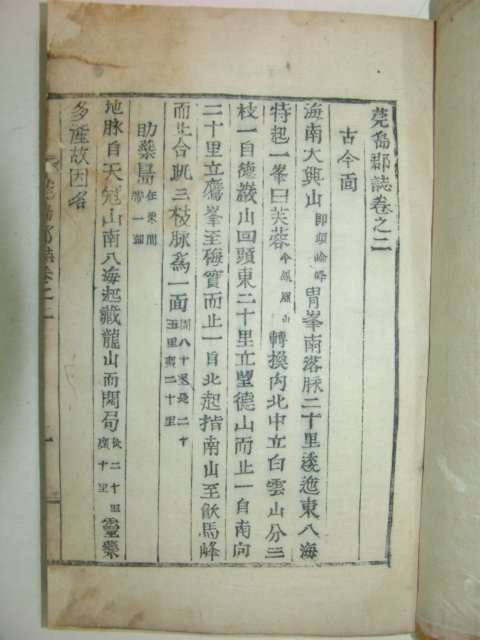 莞島郡誌卷之二
古今面
海南大興山即頭崙峰胃峯南落脉二十里逶迤東入海
特起一峯曰芙蓉今鳳凰山轉換向北中立白雲山分三
枝一自德巖山回頭東二十里立望德山而止一自南向
二十里立鷹峯至礪實而止一自北起指南山至飮馬峰
而止合此三枝脉爲一面周八十里長二十五里廣二十里
助藥島在東間帶一湖
地脉自天冠山南入海起藏龍山而開局長二十里廣十里靈藥
多產故因名
莞島郡誌卷之二 一